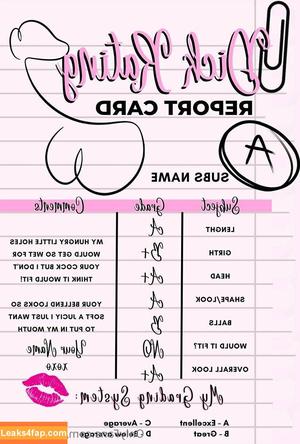 Dick Rating
REPORT CARD
A
SUBS NAME
Subject Grade Comments
LENGHT A
GIRTH B+
HEAD A+
SHAPE/LOOK A
BALLS B
WOULD IT FIT? NO
OVERALL LOOK A+
MY HUNGRY LITTLE HOLES
WOULD GET SO WET FOR
YOUR COCK BUT I DON'T
THINK IT WOULD FIT!!
YOUR BELLEND LOOKS SO
SOFT & JUICY I JUST WANT
TO PUT IN MY MOUTH
Your Name
xoxo
My Grading System:
A - Excellent C - Average
B - Great D - Below average
Leaks4fap.com